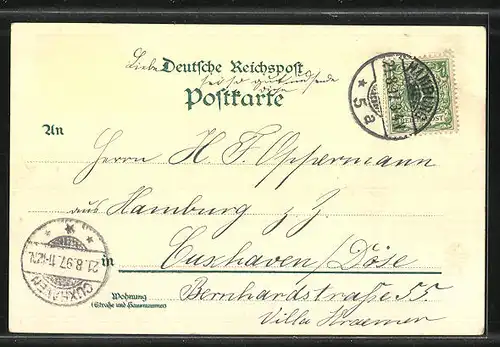 Liebe Deutsche Reichspost
Postkarte
An
Herrn H. F. Oppermann
aus Hamburg z. Z.
in Cuxhaven/Döse
Wohnung
(Straße und Hausnummer)
Bernhardstraße 55
Villa Kraemer
HAMBURG
* 5 a
CUXHAVEN
21.8.97. 11-12N.